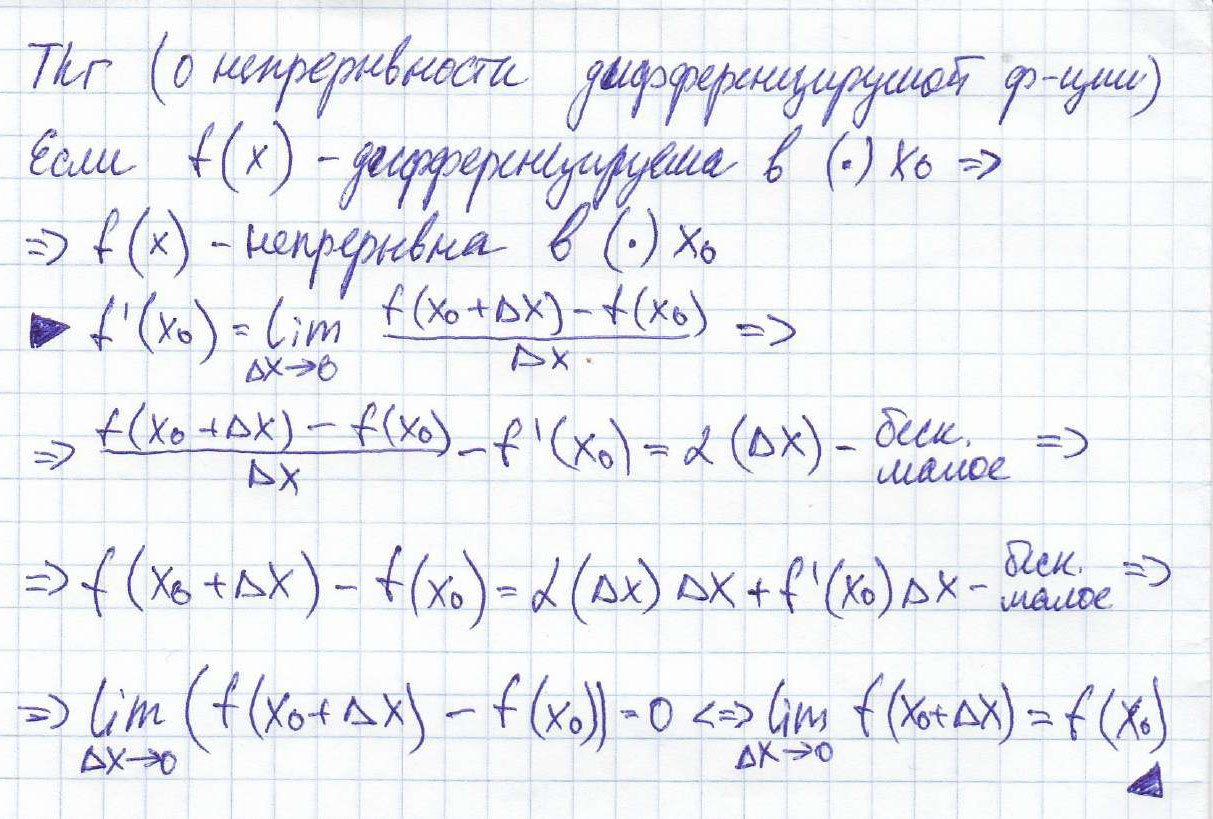 Thr (о непрерывности дифференцируемой ф-ции)
Если f(x) - дифференцируема в (·) x₀ =>
=> f(x) - непрерывна в (·) x₀
▶ f'(x₀) = lim_{Δx→0} (f(x₀+Δx) - f(x₀))/Δx =>
=> (f(x₀+Δx) - f(x₀))/Δx - f'(x₀) = α(Δx) - беск. малое =>
=> f(x₀+Δx) - f(x₀) = α(Δx)Δx + f'(x₀)Δx - беск. малое =>
=> lim_{Δx→0} (f(x₀+Δx) - f(x₀)) = 0 <=> lim_{Δx→0} f(x₀+Δx) = f(x₀)